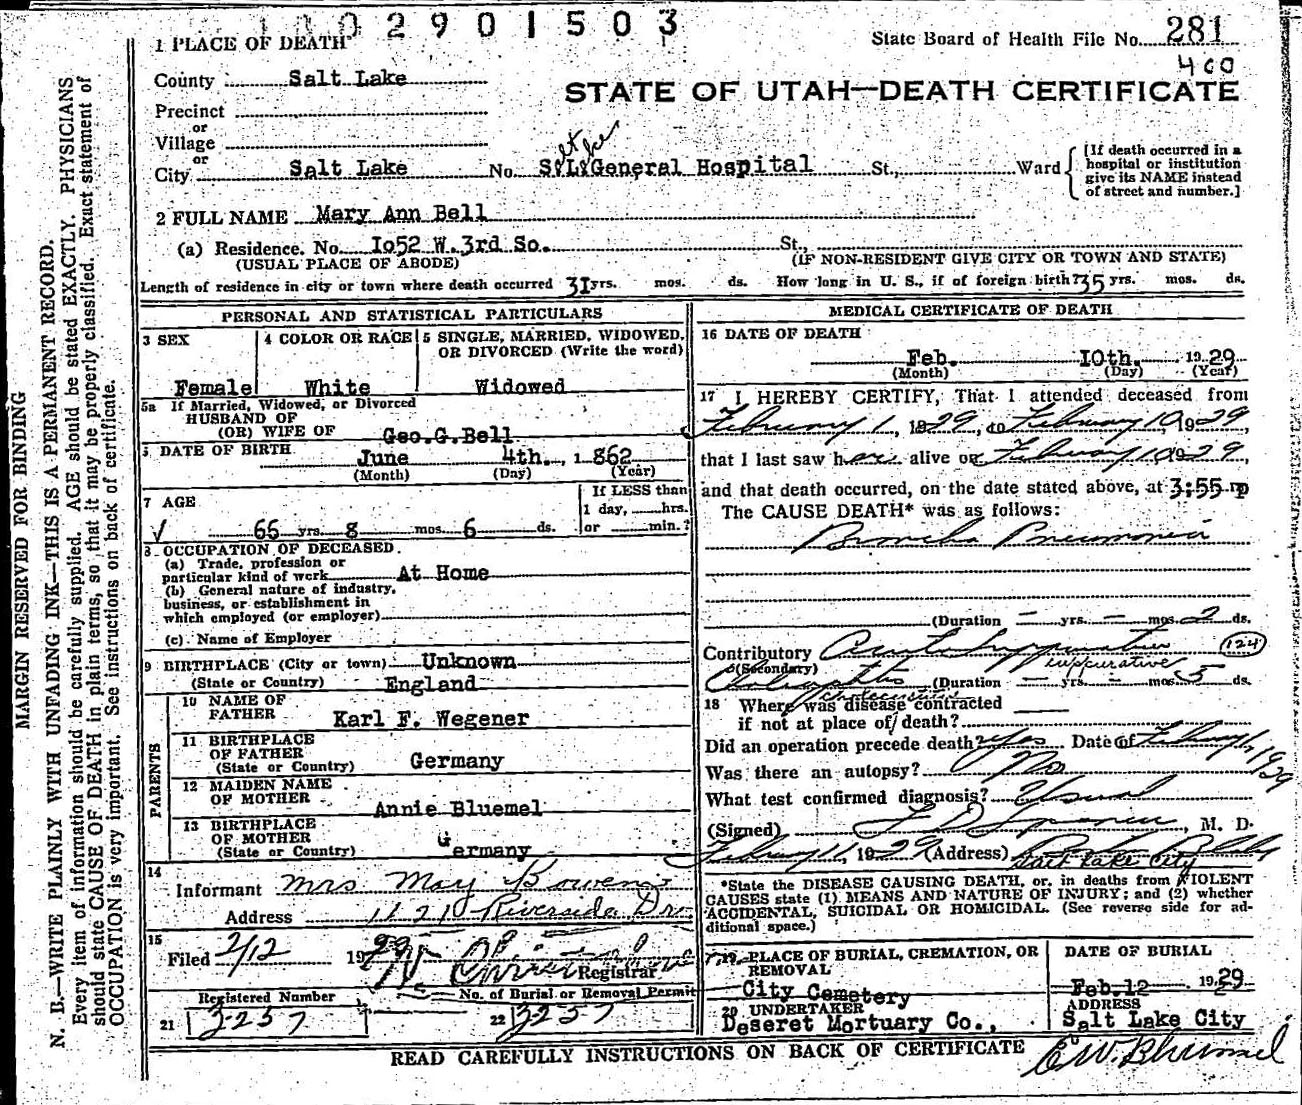 1002901503
1 PLACE OF DEATH
State Board of Health File No. 281
400
County Salt Lake
STATE OF UTAH—DEATH CERTIFICATE
Precinct
or
Village
or
City Salt Lake No. S.L. General Hospital St., Ward
[If death occurred in a
hospital or institution
give its NAME instead
of street and number.]
2 FULL NAME Mary Ann Bell
(a) Residence. No. Io52 W. 3rd So. St.,
(USUAL PLACE OF ABODE) (IF NON-RESIDENT GIVE CITY OR TOWN AND STATE)
Length of residence in city or town where death occurred 3I yrs. mos. ds. How long in U. S., if of foreign birth? 35 yrs. mos. ds.
PERSONAL AND STATISTICAL PARTICULARS
3 SEX 4 COLOR OR RACE 5 SINGLE, MARRIED, WIDOWED,
OR DIVORCED (Write the word)
Female White Widowed
5a If Married, Widowed, or Divorced
HUSBAND OF
(OR) WIFE OF Geo.G.Bell
DATE OF BIRTH
June 4th., 1862
(Month) (Day) (Year)
7 AGE
If LESS than
1 day, hrs.
66 yrs. 8 mos. 6 ds. or min.?
8 OCCUPATION OF DECEASED
(a) Trade, profession or
particular kind of work At Home
(b) General nature of industry,
business, or establishment in
which employed (or employer)
(c) Name of Employer
9 BIRTHPLACE (City or town) Unknown
(State or Country) England
PARENTS
10 NAME OF
FATHER Karl F. Wegener
11 BIRTHPLACE
OF FATHER
(State or Country) Germany
12 MAIDEN NAME
OF MOTHER Annie Bluemel
13 BIRTHPLACE
OF MOTHER
(State or Country) Germany
14
Informant Mrs May Bowens
Address 1121 Riverside Dr
15
Filed 2/12 1929
Registrar
Registered Number No. of Burial or Removal Permit
21 3257 22 3257
MEDICAL CERTIFICATE OF DEATH
16 DATE OF DEATH
Feb. IOth. 1929
(Month) (Day) (Year)
17 I HEREBY CERTIFY, That I attended deceased from
February 1, 1929, to February 10, 1929,
that I last saw her alive on February 10 1929,
and that death occurred, on the date stated above, at 3:55 p
The CAUSE DEATH* was as follows:
Broncho Pneumonia
(Duration — yrs. — mos. 2 ds.
Contributory Acute Suppurative 124
(Secondary) suppurative
(Duration — yrs. — mos. 5 ds.
cholecystitis
18 Where was disease contracted
if not at place of death?
Did an operation precede death? yes Date of Feby 1, 1929
Was there an autopsy? No
What test confirmed diagnosis? Usual
(Signed) , M. D.
February 11, 1929 (Address)
Salt Lake City
*State the DISEASE CAUSING DEATH, or, in deaths from VIOLENT
CAUSES state (1) MEANS AND NATURE OF INJURY; and (2) whether
ACCIDENTAL, SUICIDAL OR HOMICIDAL. (See reverse side for ad-
ditional space.)
19 PLACE OF BURIAL, CREMATION, OR
REMOVAL
City Cemetery
DATE OF BURIAL
Feb. 12 1929
20 UNDERTAKER
Deseret Mortuary Co.,
ADDRESS
Salt Lake City
READ CAREFULLY INSTRUCTIONS ON BACK OF CERTIFICATE
MARGIN RESERVED FOR BINDING
N. B.—WRITE PLAINLY WITH UNFADING INK—THIS IS A PERMANENT RECORD.
Every item of information should be carefully supplied. AGE should be stated EXACTLY. PHYSICIANS
should state CAUSE OF DEATH in plain terms, so that it may be properly classified. Exact statement of
OCCUPATION is very important. See instructions on back of certificate.